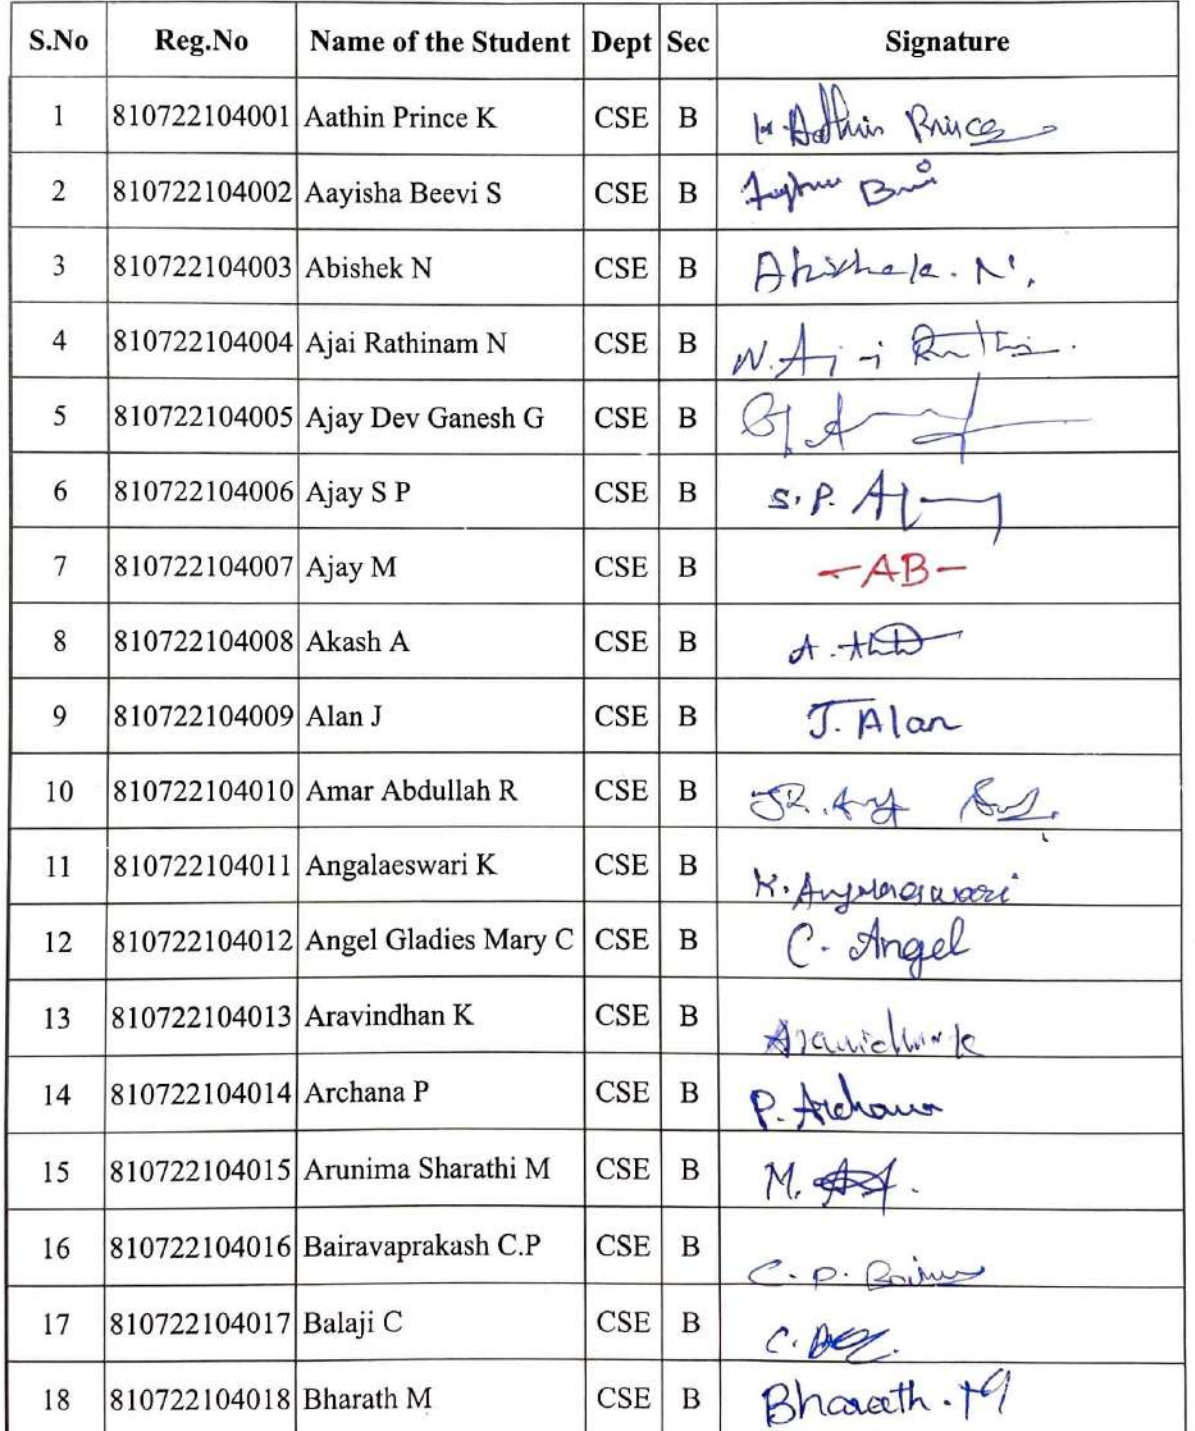 S.No Reg.No Name of the Student Dept Sec Signature
1 810722104001 Aathin Prince K CSE B K. Aathin Prince
2 810722104002 Aayisha Beevi S CSE B
3 810722104003 Abishek N CSE B Abishek. N.
4 810722104004 Ajai Rathinam N CSE B N.
5 810722104005 Ajay Dev Ganesh G CSE B
6 810722104006 Ajay S P CSE B S. P.
7 810722104007 Ajay M CSE B -AB-
8 810722104008 Akash A CSE B A.
9 810722104009 Alan J CSE B J. Alan
10 810722104010 Amar Abdullah R CSE B
11 810722104011 Angalaeswari K CSE B K.
12 810722104012 Angel Gladies Mary C CSE B C. Angel
13 810722104013 Aravindhan K CSE B
14 810722104014 Archana P CSE B P. Archana
15 810722104015 Arunima Sharathi M CSE B M.
16 810722104016 Bairavaprakash C.P CSE B C. P.
17 810722104017 Balaji C CSE B C.
18 810722104018 Bharath M CSE B